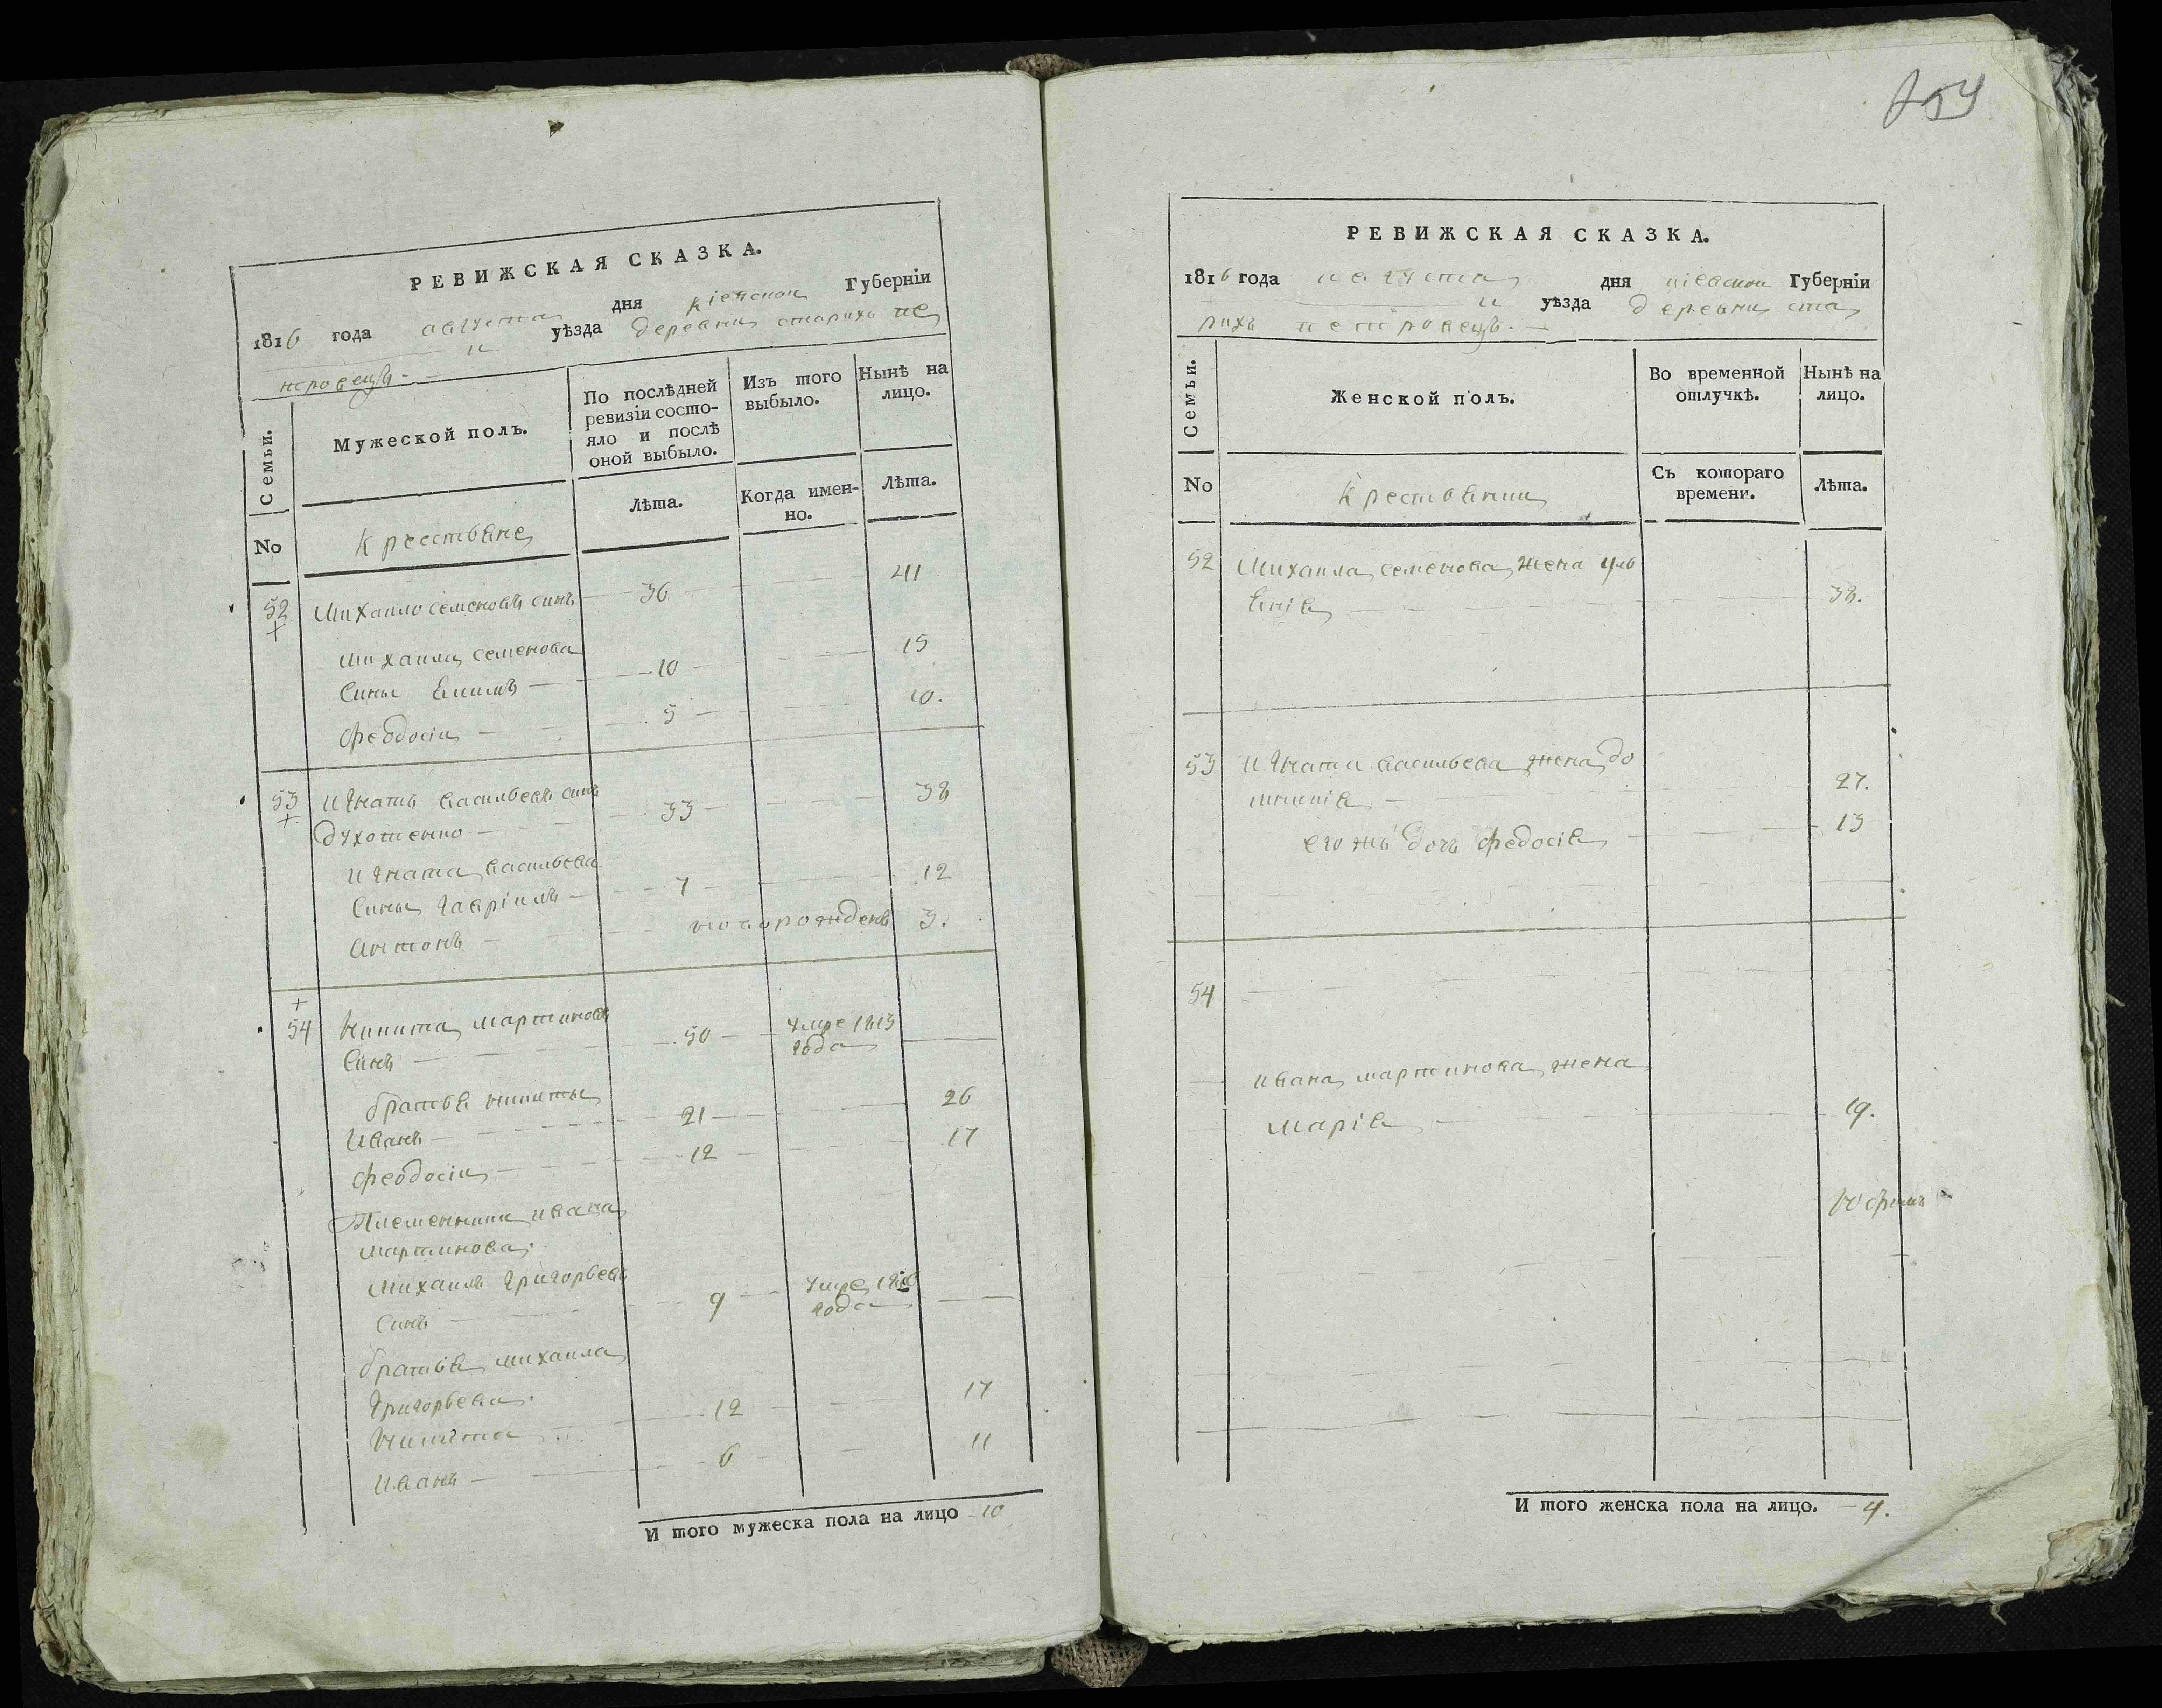 РЕВИЖСКАЯ СКАЗКА.
1816 года августа дня кіевской Губерніи
и уѣзда деревни старихъ пе
тровецъ.
Семьи.
Мужеской полъ.
По послѣдней
ревизіи состо-
яло и послѣ
оной выбыло.
Изъ того
выбыло.
Нынѣ на
лицо.
No
Крестьяне
Лѣта.
Когда имен-
но.
Лѣта.
52 Михайло семеновъ синъ 36 41
Михаила семенова
сины 10 15
феодосіи 5 10.
53 игнатъ васильевъ синъ 33 38
духотенко
игната васильева
сины гавріилъ 7 12
антонъ новорожденъ 3.
54 никита мартиновъ
синъ 50 умре 1813
года
братья никиты
иванъ 21 26
феодосіи 12 17
Племенники ивана
мартинова.
михаилъ григорьевъ
синъ 9 умре
года
братья михаила
григорьева.
никита 12 17
иванъ 6 11
И того мужеска пола на лицо 10
РЕВИЖСКАЯ СКАЗКА.
1816 года августа дня кіевской Губерніи
и уѣзда деревни ста
рихъ петровецъ.
Семьи.
Женской полъ.
Во временной
отлучкѣ.
Нынѣ на
лицо.
No
Крестьянки
Съ котораго
времени.
Лѣта.
52 Михаила семенова жена уль
яния 38.
53 игната васильева жена до
мникія 27.
его жъ дочъ федосія 13
54
ивана мартинова жена
марія 19.
И того женска пола на лицо. 4.